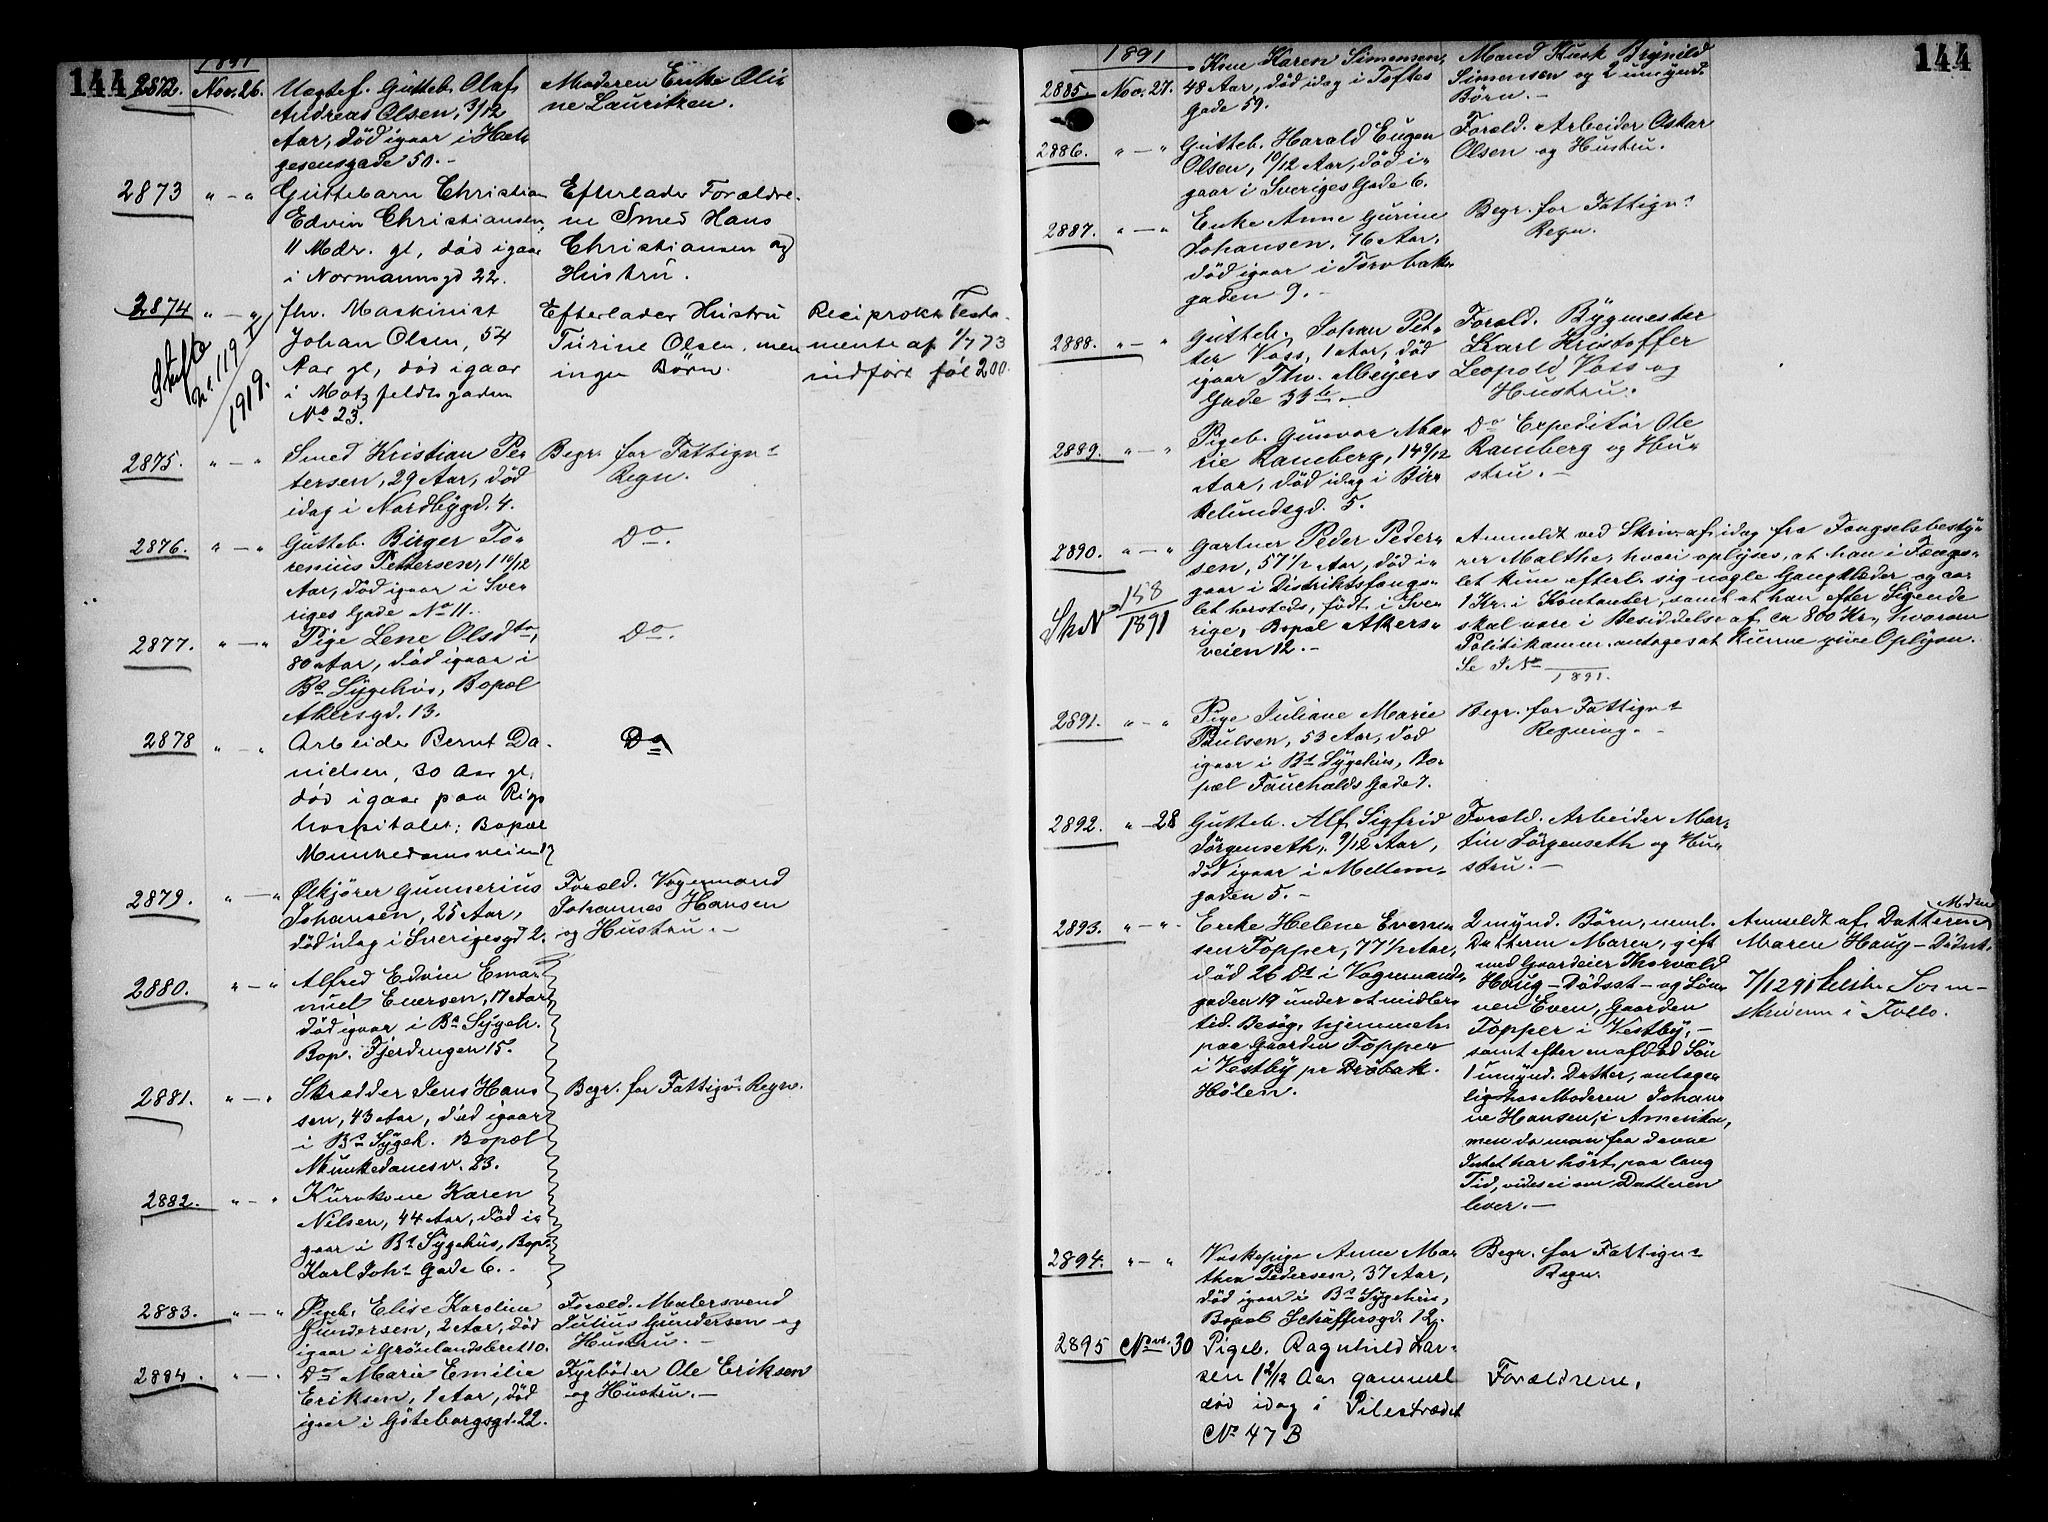 144
1891
2872. Nov. 26.
Uægtef. Gutteb. Olaf
Andreas Olsen, 3/12
Aar, død igaar i Hel-
gesensgade 50. -
Moderen Enke Oli-
ne Lauritzen.
2873 " - "
Guttebarn Christian
Edvin Christiansen,
11 Mdr. gl, død igaar
i Normannsgd 22.
Efterlader Forældre-
ne Smed Hans
Christiansen og
Hustru.
2874 " - "
Skifte
No. 119
1919.
fhv. Maskinist
Johan Olsen, 54
Aar gl, død igaar
i Motzfeldtsgaden
No 23.
Efterlader Hustru
Turine Olsen, men
ingen Børn.
Reciprokt Testa-
mente af 1/7 73
indført fol 200.
2875. " - "
Smed Kristian Pe-
tersen, 29 Aar, død
idag i Nordbygd. 4.
Begr. for Fattigv.s
Regn.
2876. " - "
Gutteb. Birger To-
renius Pettersen, 1 10/12
Aar, død igaar i Sve-
riges Gade No 11.
Do.
2877. " - "
Pige Lene Olsdtr,
80 Aar, død igaar i
Bs Sygehus, Bopæl
Akersgd. 13.
Do.
2878 " - "
Arbeider Bernt Da-
nielsen, 30 Aar gl,
død igaar paa Rigs-
hospitalet; Bopæl
Munkedamsveien 17
Do
2879. " - "
Ølkjører Gunnerius
Johansen, 25 Aar,
død idag i Sverigesgd 2.
Foræld. Vognmand
Johannes Hansen
og Hustru. -
2880. " - "
Alfred Edvin Ema-
nuel Evensen, 17 Aar
død igaar i Bs Sygeh.
Bop. Fjerdingen 15.
2881. " - "
Skrædder Jens Han-
sen, 43 Aar, død igaar
i Bs Sygeh. Bopæl
Munkedamsv. 23.
Begr. for Fattigvs. Regn.
2882. " - "
Kurvkone Karen
Nilsen, 44 Aar, død i-
gaar i Bs Sygehus, Bop.
Karl Johs Gade 6.
2883. " - "
Pigeb. Elise Karoline
Gundersen, 2 Aar, død
igaar i Grønlandsleret 10.
Foræld. Malersvend
Julius Gundersen og
Hustru. -
2884. " - "
Do Marie Emilie
Eriksen, 1 Aar, død
igaar i Göteborgsgd. 22.
Fyrbøder Ole Eriksen
og Hustru. -
144
1891
2885. Nov. 27.
Kone Karen Simensen,
48 Aar, død idag i Toftes
Gade 59.
Mand Kusk Brynild
Simensen og 2 umynd.
Børn. -
2886. " - "
Gutteb. Harald Eugen
Olsen, 10/12 Aar, død i-
gaar i Sveriges Gade 6.
Foræld. Arbeider Oskar
Olsen og Hustru.
2887. " - "
Enke Anne Gurine
Johansen, 76 Aar,
død igaar i Torvbak-
gaden 9. -
Begr. for Fattigv.s
Regn.
2888. " - "
Gutteb. Johan Pet-
ter Voss, 1 Aar, død
igaar Thv. Meyers
Gade 33 b. -
Foræld. Bygmester
Karl Kristoffer
Leopold Voss og
Hustru.
2889. " - "
Pigeb. Gunvor Ma-
rie Ramberg, 1 4/12
Aar, død idag i Bir-
kelundsgd. 5.
Do Expeditør Ole
Ramberg og Hu-
stru. -
2890. " - "
Sk No 158
1891
Gartner Peder Peder-
sen, 57 1/2 Aar, død i-
gaar i Distriktsfængs-
let hersteds, født i Sve-
rige, Bopæl Akers-
veien 12. -
Anmeldt ved Skriv. af idag fra Fængselsbesty-
rer Malthe, hvori oplyses, at han i Fængs-
let kun efterl. sig nogle Gangklæder og ca.
1 Kr. i Kontanter, samt at han efter Sigende
skal være i Besiddelse af ca 800 Kr., hvorom
Politikamm. antages at kunne give Oplysn.
Se J No
1891.
2891. " - "
Pige Juliane Marie
Paulsen, 53 Aar, død
igaar i Bs Sygehus, Bo-
pæl Fauchalds Gade 7.
Begr. for Fattigv.s
Regning. -
2892. " - 28
Gutteb. Alf Sigfrid
Jørgenseth, 9/12 Aar,
død igaar i Mellem-
gaden 5. -
Foræld. Arbeider Mar-
tin Jørgenseth og Hu-
stru. -
2893. " - "
Enke Helene Even-
sen Topper, 77 1/2 Aar,
død 26 Ds i Vognmands-
gaden 19 under et midler-
tid. Besøg, hjemmeh.
paa Gaarden Topper
i Vestby pr Drøbak.
Hølen.
2 mynd. Børn, neml.
Datteren Maren, gift
med Gaardeier Thorvald
Haug - Dødsat - og Søn-
nen Even, Gaarden
Topper i Vestby, -
samt efter en afdød Søn
1 umynd. Datter, antage-
lig hos Moderen Johan-
ne Hansen, i Amerika,
men da man fra denne
Intet har hørt paa lang
Tid, vides ei om Datteren
lever. -
Anmeldt af Datteren
Maren Haug - Dødsat.
7/12 91 Soren-
skriveren i Follo.
2894. " - "
Vaskepige Anne Ma-
thea Pedersen, 37 Aar,
død igaar i Bs Sygehus,
Bopæl Schäffersgd. 12.
Begr. for Fattigv.s
Regn.
2895 Nov. 30
Pigeb. Ragnhild Lar-
sen 1 2/12 Aar gammel
død idag i Pilestrædet
No 47 B
Forældrene.